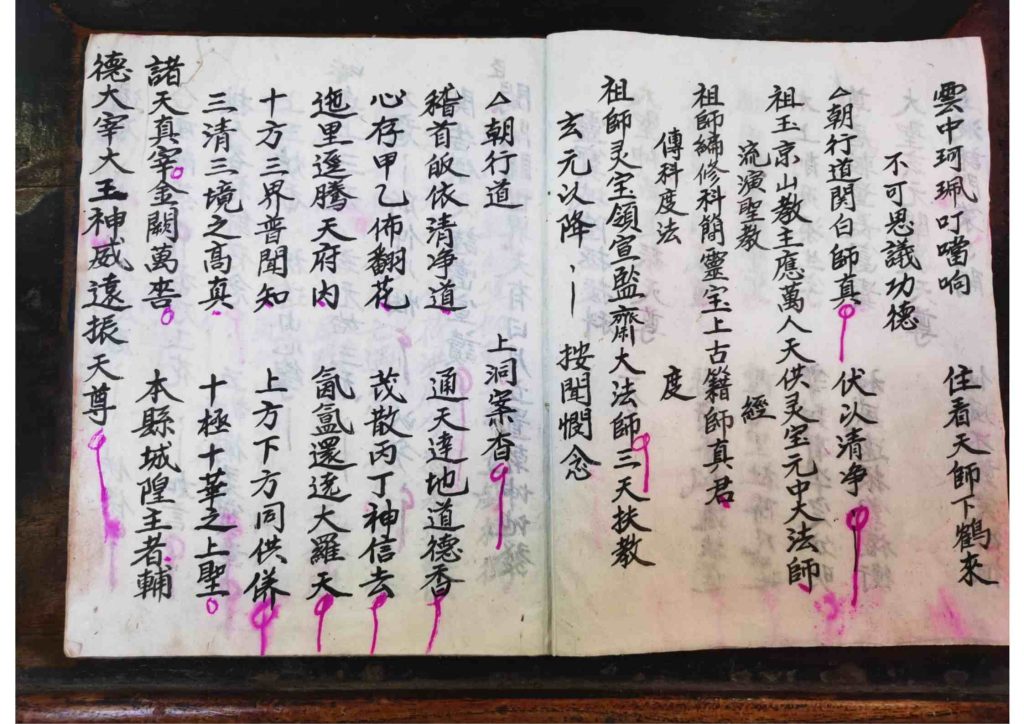 雲中珂珮叮噹响 住看天師下鶴來
不可思議功德
△朝行道関白師真 伏以清净
祖玉京山教主應萬人天供灵宝元中大法師
流演聖教 經
祖師編修科簡靈宝上古籍師真君
傳科度法 度
祖師灵宝領宣監齋大法師三天扶教
玄元以降 按聞憫念
△朝行道 上洞案香
稽首皈依清净道 通天達地道德香
心存甲乙佈翻花 茂散丙丁神信去
迤里遥腾天府内 氤氲還遶大羅天
十方三界普聞知 上方下方同供併
三清三境之高真 十極十華之上聖
諸天真宰金闕萬 本縣城隍主者輔
德大宰大王神威遠振天尊